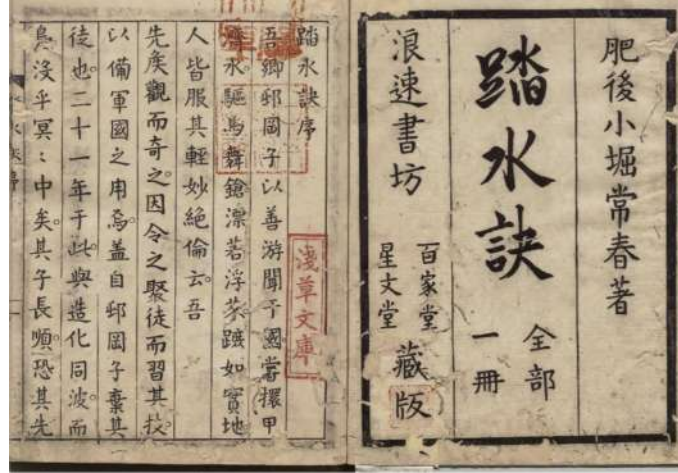 肥後小堀常春著
踏水訣
全部
一冊
浪速書坊
百家堂
星文堂
藏版
踏水訣序
吾鄉邨岡子以善游聞予國嘗擐甲
水驅馬舞鎗漂若浮荻蹠如實地
人皆服其輕妙絕倫云吾
先矦觀而奇之因令之聚徒而習其技
以備軍國之用焉蓋自邨岡子棄其
徒也二十一年于此與造化同波而
沒乎冥〻中矣其子長順恐其先
淺草文庫